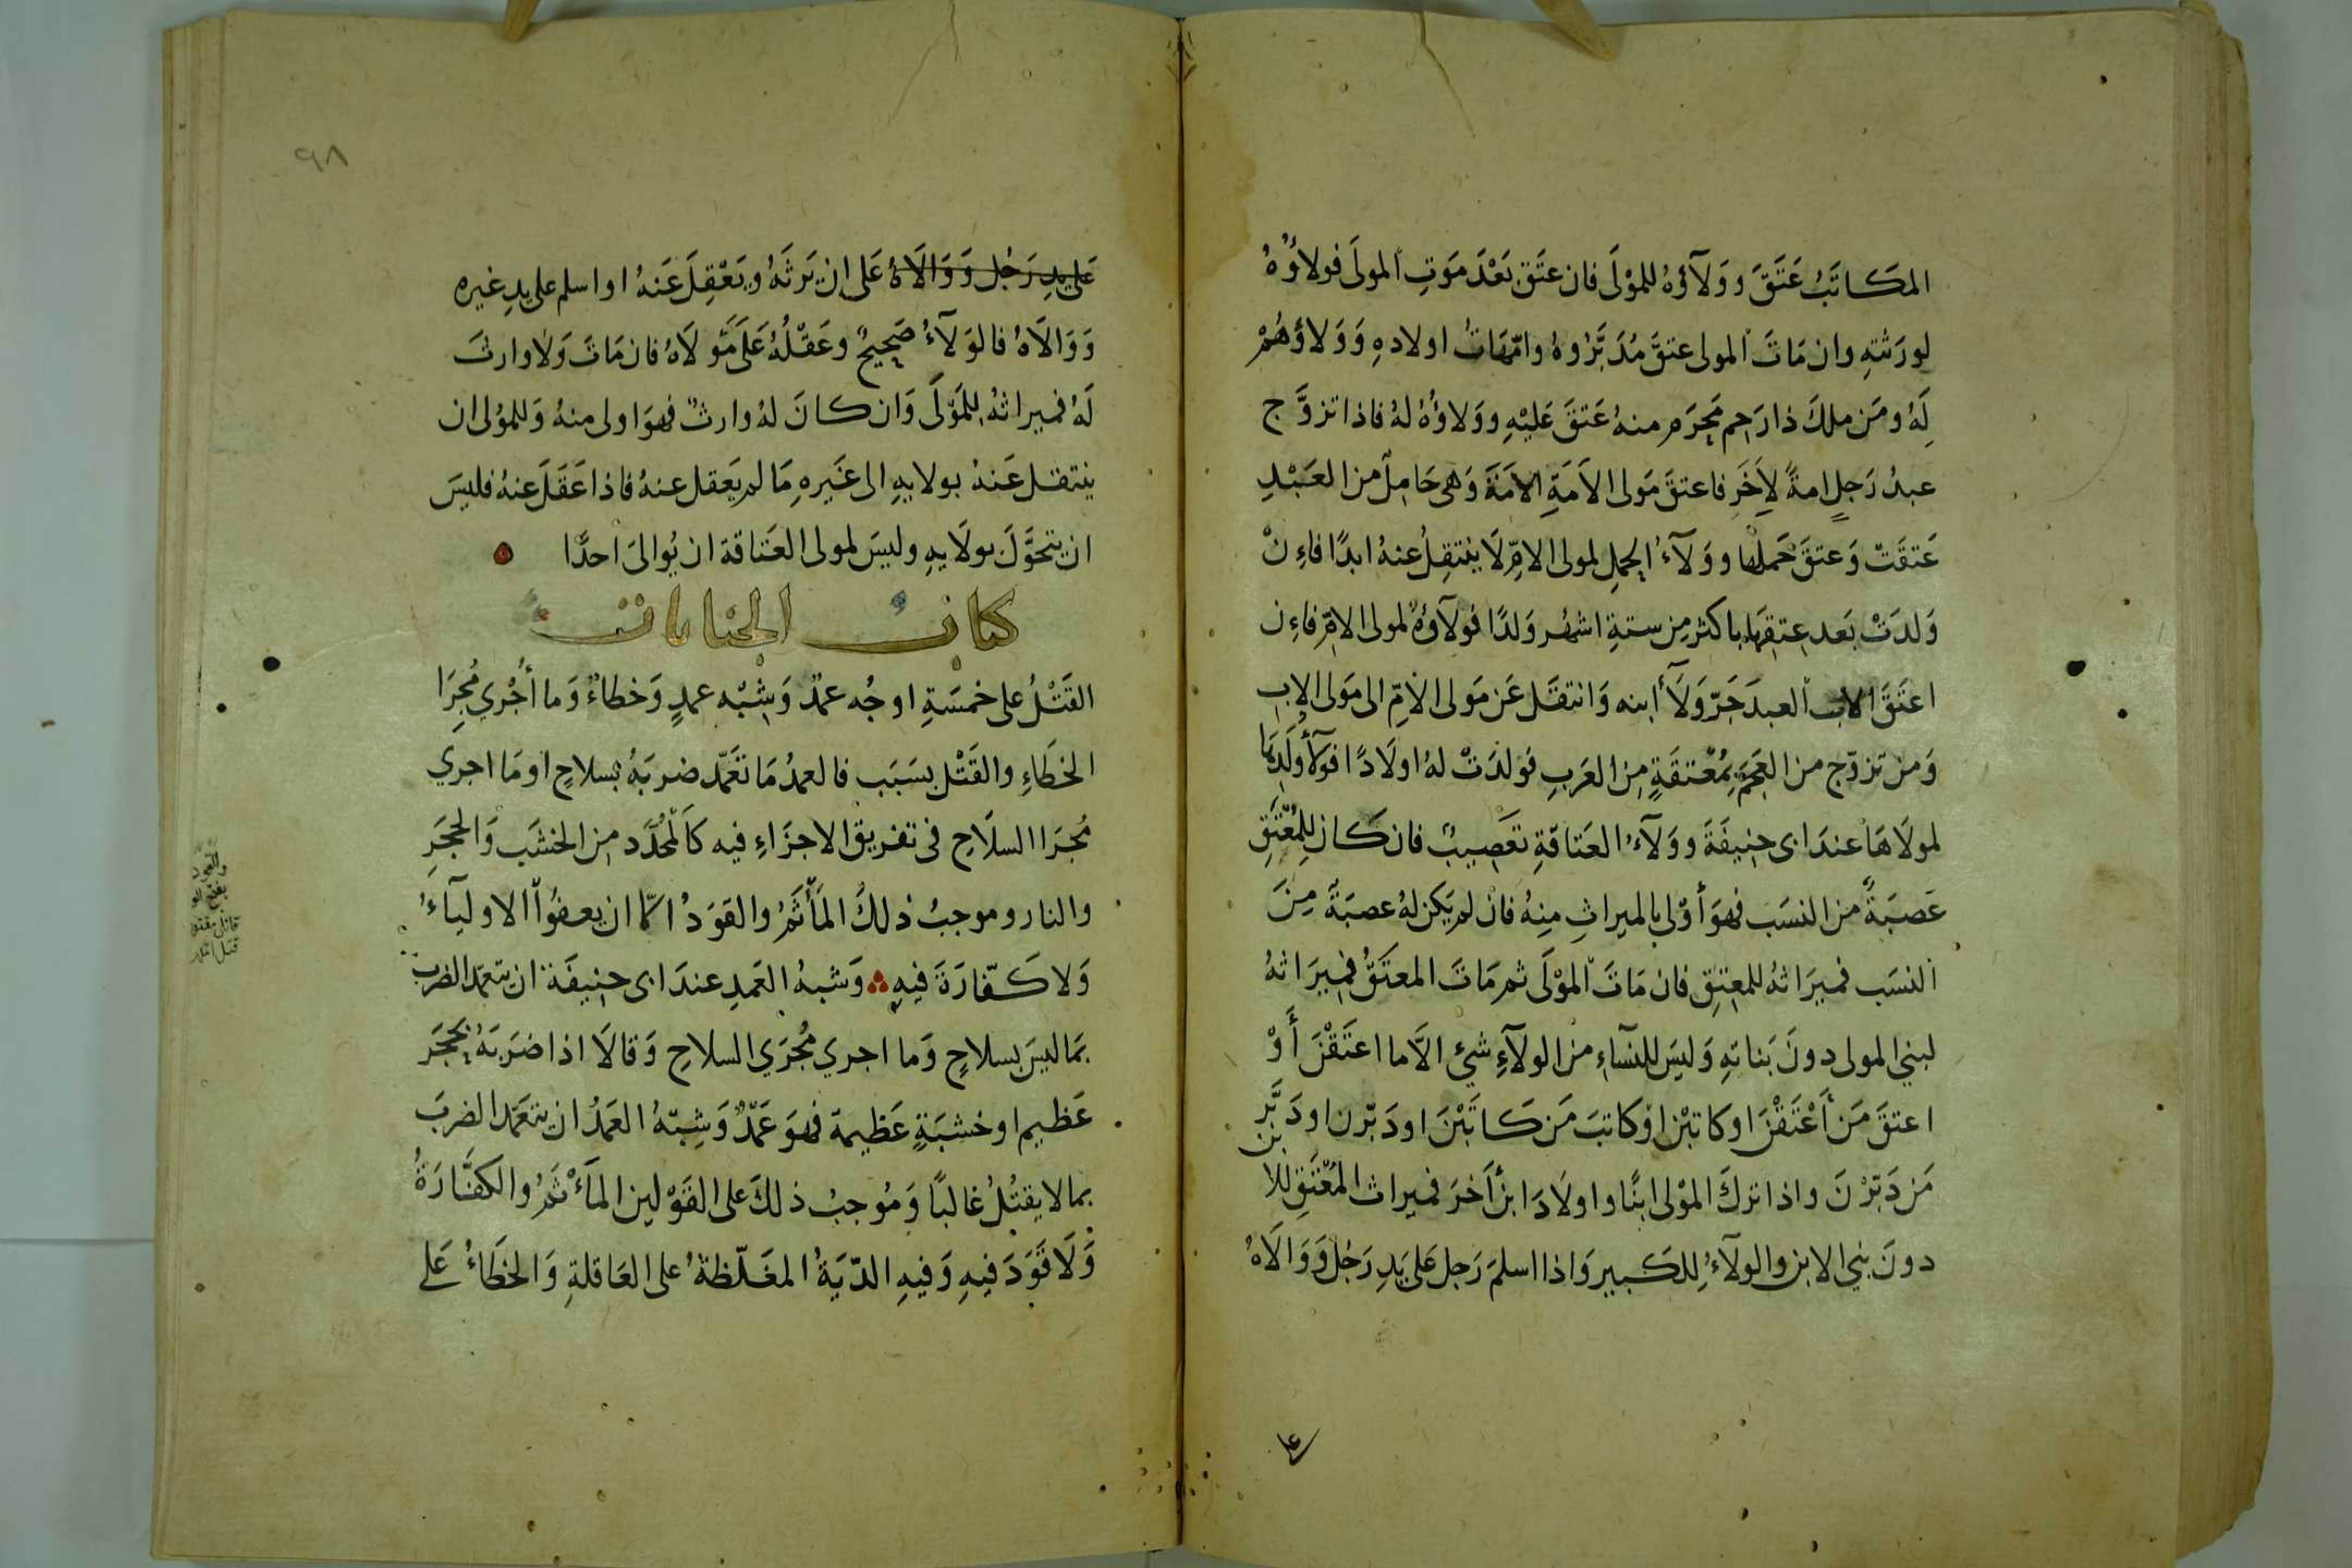 المكاتَبُ عَتَقَ وَوَلَآؤهُ للموْلَى فان عتَق بَعْدَ مَوتِ المولَى فولاؤُهُ
لورَثتهِ وان مَاتَ المولى عتقَ مُدَبَّرُوهُ وامّهَاتُ اولادهِ وَوَلاؤهُمْ
لَهُ ومَن ملكَ ذا رَحِم مَحرَم منهُ عَتقَ عَليْهِ ووَلاؤُهُ لهُ فاذا تزوَّج
عبدُ رَجلٍ امةً لِآخَرَ فاعتقَ مَولى الاَمَةِ الاَمَةَ وَهى حَامِلٌ من العَبْدِ
عَتقَتْ وَعتقَ حَملُها ووَلَآءُ الحملِ لمولى الامِّ لَا ينتقِلُ عنهُ ابدًا فاءِنْ
وَلدَتْ بَعد عِتقِهَا باكثر مِن ستةِ اشهُر وَلدًا فولآؤهُ لمولى الامِّ فاءِن
اعتَقَ الاب العبدَ جَرَّ وَلَآَ ابنه وَانتقَل عَن مَولى الامِّ الى مَولى الابِ
وَمن تزوّج من العَجَم بِمُعْتقَةٍ مِن العَربِ فولدَتْ لهُ اولَادًا فوَلَآُ وُلْدِهَا
لمولَاهَا عندَ ابى حنِيفَةَ ووَلَآءُ العَتاقَةِ تعَصِيبٌ فان كَان لِلمُعْتَقِ
عَصبَةٌ من النسَب فهوَ أوْلى بالميراثِ مِنهُ فان لم يَكن لهُ عصبَةٌ مِنَ
النسَب فميرَاثهُ للمعتِق فان مَاتَ الموْلَى ثم مَاتَ المعتَقُ فمِيرَاثهُ
لبني المولى دونَ بَناتهِ وَليسَ للنسَآءِ من الولآءِ شيءٌ الاَّ ما اعتَقْنَ أَوْ
اعتقَ مَن أَعْتَقْنَ او كاتبْن اوْ كاتبَ مَن كَاتَبْنَ او دَبّرن او دَبَّر
مَن دَبَّرْنَ واذا تركَ الموْلى ابنًا واولَادَ ابنٍ أَخرَ فميراث المُعْتَقِ للا بن
دونَ بني الابن والولآءُ لِلكَبير وَاذا اسلمَ رَجل عَلى يَدِ رَجُل وَوَالَاهُ
على
٩٨
عَلى يدِ رَجُل وَوَالَاهُ عَلى ان يَرثهُ ويَعْقِلَ عَنهُ او اسلم على يدِ غيره
وَوَالَاهُ فالوَلَآءُ صَحِيحٌ وعَقْلُهُ عَلَى مَولَاهُ فان مَاتَ وَلَا وارثَ
لَهُ فميراثهُ للمَوْلَى وَان كانَ لهُ وارثٌ فهوَ اولى منهُ وَللمولى ان
ينتقل عَنهُ بولايهِ الى غَيرهِ مَا لم يَعقل عنهُ فاذا عَقَلَ عنهُ فليسَ
ان يتحَوَّلَ بولَايهِ وليسَ لمولى العَتاقة ان يُوالىَ احدًا
كتابُ الجنايات
القَتْلُ على خمسَةِ اوجُه عمدٌ وَشِبْه عمدٍ وَخطاءٌ وَما أُجْري مُجرَا
الخطَاءِ والقَتْل بسَبَب فالعمدُ مَا تعَمّد ضربَهُ بسلاحٍ اومَا اجري
مُجرَا السلَاحِ فى تفريق الاجزَاءِ فيه كالمُحدَّد من الخشَب وَالحجَرِ
والنار وموجبُ ذلكَ المَأْثَمُ والقوَدُ الّا ان يعفوُا الاوليآءُ
وَلا كَفّارَةَ فيهِ وَشبهُ العَمدِ عندَ ابى حنِيفَة ان يتعمّد الضربَ
بمَا ليسَ بسلاحٍ وَما اجري مُجرَي السلاحِ وَقالَا اذا ضرَبَهُ بحجَر
عَظيم او خشبَةٍ عَظيمة فهوَ عَمْدٌ وَشِبْهُ العَمْدُ ان يتعَمّد الضربَ
بمالا يقتُلُ غالبًا وَمُوجبُ ذلكَ على القَوْلين المَأْثَمُ والكفَّارَةُ
وَلَا قَوَدَ فيهِ وَفيهِ الدّيَةُ المغَلّظةُ على العَاقلةِ وَالخطَاءُ عَلى
والقود